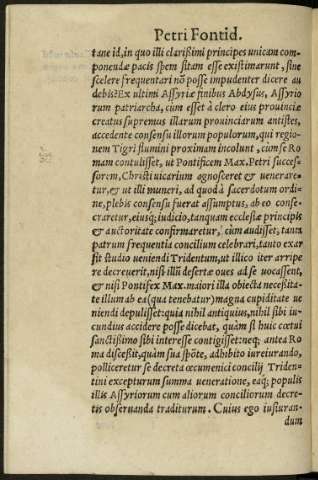 Petri Fontid.
tare id, in quo illi clarißimi principes unicam com-
ponendæ pacis spem sitam esse existimarunt, sine
scelere frequentari nõ posse impudenter dicere au
debis? Ex ultimi Assyriæ finibus Abdysus, Assyrio
rum patriarcha, cùm esset à clero eius prouinciæ
creatus supremus illarum prouinciarum antistes,
accedente consensu illorum populorum, qui regio-
nem Tigri flumini proximam incolunt, cùm se Ro
mam contulisset, ut Pontificem Max. Petri succes-
sorem, Christi uicarium agnosceret & uenerare-
tur, & ut illi muneri, ad quod à sacerdotum ordi-
ne, plebis consensu fuerat assumptus, ab eo conse-
craretur, eiusq; iudicio, tanquam ecclesiæ principis
& auctoritate confirmaretur, cùm audisset, tanta
patrum frequentia concilium celebrari, tanto exar
sit studio ueniendi Tridentum, ut illico iter arripe
re decreuerit, nisi illũ desertæ oues ad se uocassent,
& nisi Pontifex Max. maiori illa obiecta necessita-
te illum ab ea (qua tenebatur) magna cupiditate ue
niendi depulisset: quia nihil antiquius, nihil sibi iu-
cundius accidere posse dicebat, quàm si huic cœtui
sanctißimo sibi interesse contigisset: neq; antea Ro
ma discessit, quàm sua spõte, adhibito iureiurando,
polliceretur se decreta œcumenici concilij Triden-
tini excepturum summa ueneratione, eaq; populis
illis Assyriorum cum aliorum conciliorum decre-
tis obseruanda traditurum. Cuius ego iusiuran-
dum